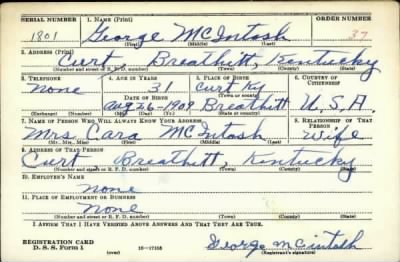 SERIAL NUMBER 1. NAME (Print) ORDER NUMBER
1801 George McIntosh 37
(First) (Middle) (Last)
2. ADDRESS (Print)
Curt, Breathitt, Kentucky
(Number and street or R. F. D. number) (Town) (County) (State)
3. TELEPHONE 4. AGE IN YEARS 5. PLACE OF BIRTH 6. COUNTRY OF CITIZENSHIP
None 31 Curt Ky
DATE OF BIRTH (Town or county)
Aug 26-1909 Breathitt U.S.A.
(Exchange) (Number) (Mo.) (Day) (Yr.) (State or country)
7. NAME OF PERSON WHO WILL ALWAYS KNOW YOUR ADDRESS 8. RELATIONSHIP OF THAT PERSON
Mrs Cara McIntosh Wife
(Mr., Mrs., Miss) (First) (Middle) (Last)
9. ADDRESS OF THAT PERSON
Curt Breathitt, Kentucky
(Number and street or R. F. D. number) (Town) (County) (State)
10. EMPLOYER'S NAME
None
11. PLACE OF EMPLOYMENT OR BUSINESS
None
(Number and street or R. F. D. number) (Town) (County) (State)
I AFFIRM THAT I HAVE VERIFIED ABOVE ANSWERS AND THAT THEY ARE TRUE.
REGISTRATION CARD George McIntosh
D. S. S. Form 1 (over) 16—17105 (Registrant's signature)